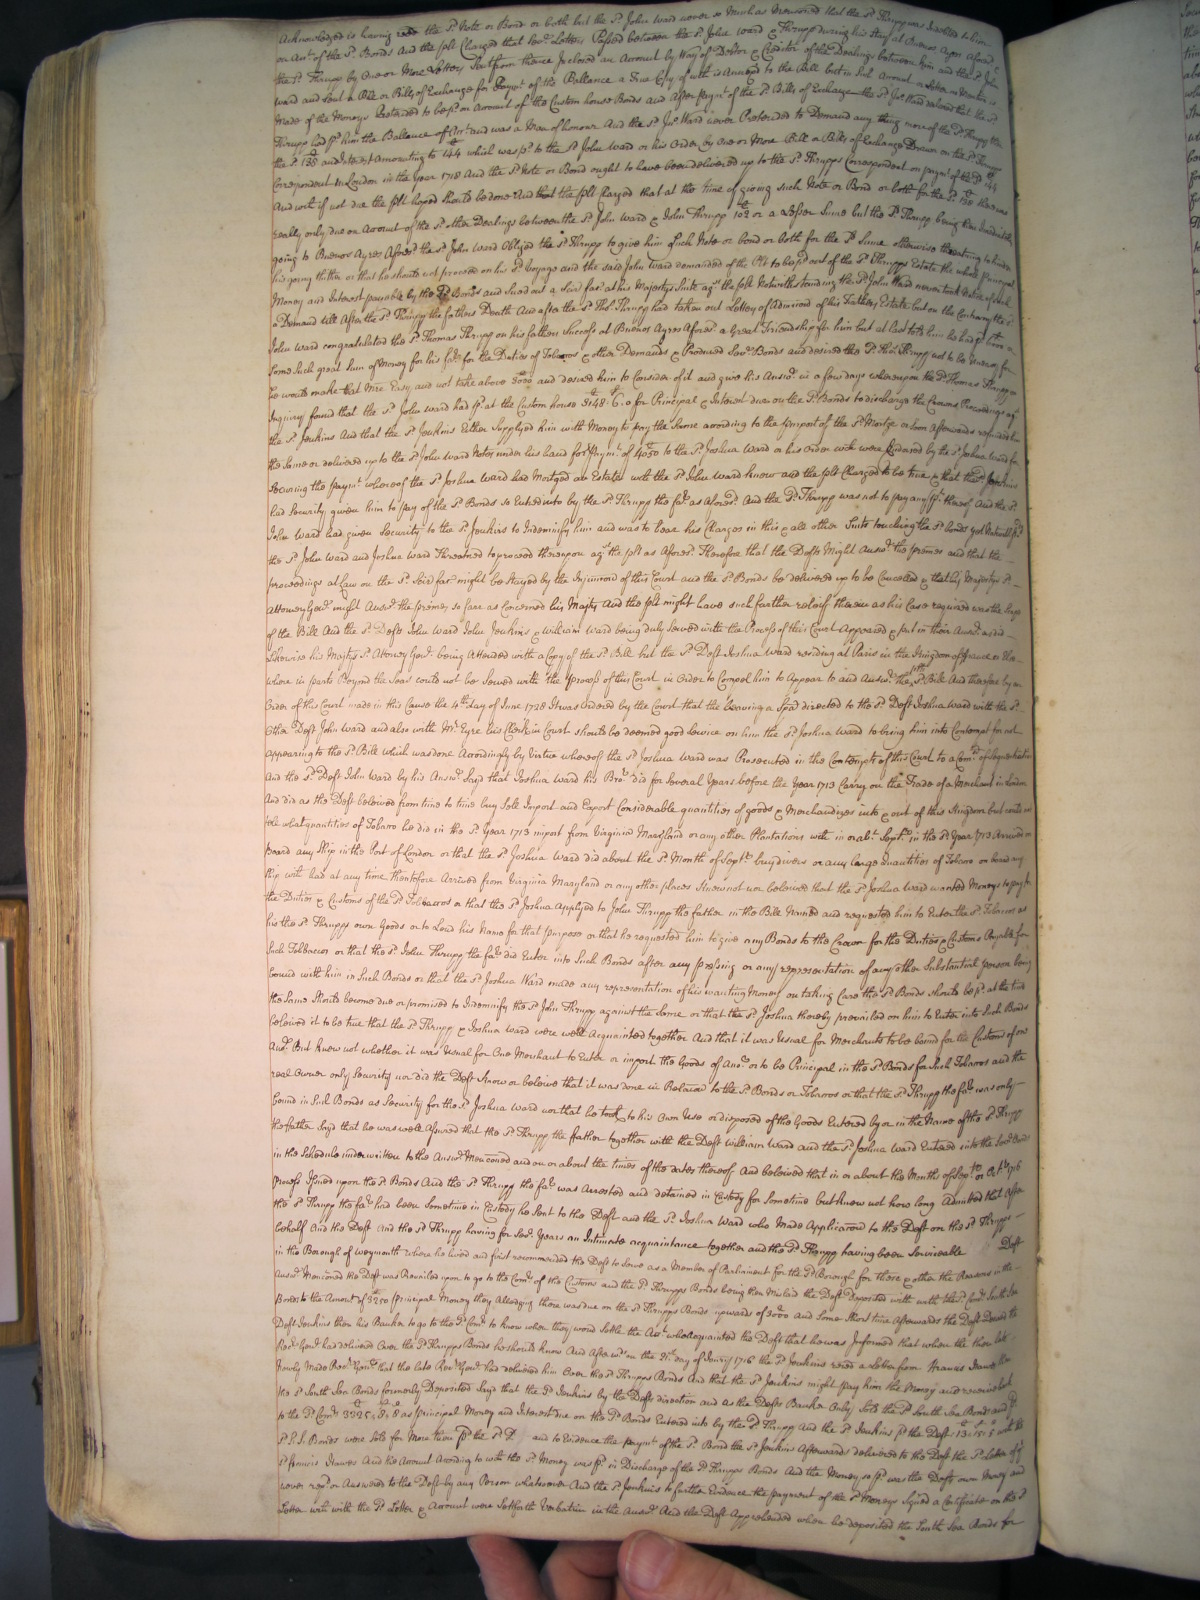 Acknowledged is having the Sd. Note or Bond or both but the Sd. John Ward never so much as Menconed that the Sd. Thrupp was Indebted to him
on Acct. of the Sd. Bonds And the plt Charged that Sevl. Letters Passed between the Sd. John Ward & Thrupp during his Stay at Buenos Ayres Aforesd.
the Sd. Thrupp by One or More Letters Sent from thence Inclosed an Account by Way of Debtor & Creditor of the Dealings between him and the Sd. John
Ward and Sent a Bill or Bills of Exchange for Paymt. of the Ballance a True Copy of wch is Annexed to the Bill but in Such Account or Letter no Mention is
made of the Moneys Pretended to be pd. on Account of the Custom house Bonds and After paymt. of the Sd. Bills of Exchange the Sd. Jno. Ward declared that the Sd.
Thrupp had pd. him the Ballance of Acct. and was a Man of honour And the Sd. Jno. Ward never Pretended to Demand any thing more of the Sd. Thrupp
the Sd. 135 and Interest Amounting to 144 which was pd. to the Sd. John Ward or his Order by One or More Bill or Bills of Exchange Drawn on the Sd. Thrupps
Correspondent in London in the Year 1718 And the Sd. Note or Bond ought to have been delivered up to the Sd. Thrupps Correspondent on paymt. of 144
And wch if not due the plt hoped should be done And that the plt Charged that at the time of giving such Note or Bond or both for the Sd. 135 there was
really only due on Account of the Sd. other Dealings between the Sd. John Ward & John Thrupp 102 or a Lesser Sume but the Sd. Thrupp being then Imediately
going to Buenos Ayres Aforesd. the Sd. John Ward Obliged the Sd. Thrupp to give him Such Note or bond or both for the Sd. Sume otherwise threatning to hinder
his going thither or that he should not proceed on his Sd. Voyage and the said John Ward demanded of the Plt to be pd. out of the Sd. Thrupps Estate the whole principal
Money and Interest payable by the Sd. Bonds and Sued out a Scire fac. at his Majestys Suite agt. the plt Notwithstanding the Sd. John Ward never took Notice of such
a Demand till After the Sd. Thrupp the fathers Death And after the Sd. Tho. Thrupp had taken out Letters of Admicon of his Fathers Estate but on the Contrary the Sd.
John Ward congratulated the Sd. Thomas Thrupp on his fathers Success at Buenos Ayres Aforesd. a Great Friendship for him but at last told him he had pd.
Some Such great Sum of Money for his fat. for the Duties of Tobaccos & other Demands & Produced Sevl. Bonds and desired the Sd. Tho. Thrupp not to be Uneasy for
he would make that Mre. Easy and not take above 3000 and desired him to Consider of it and give his Answr. in a few days whereupon the Sd. Thomas Thrupp on
Inquiry found that the Sd. John Ward had pd. at the Custom house 3148. 6. 0 for Principal & Interest due on the Sd. Bonds to discharge the Crowns Proceedings agt.
the Sd. Jenkins And that the Sd. Jenkins Either Supplyed him with Money to pay the Same according to the purport of the Sd. Mortge. or Soon Afterwards
the Same or delivered up to the Sd. John Ward Notes under his hand for Paymt. of 4050 to the Sd. Joshua Ward or his Order wch were Endorsed by the Sd. Joshua Ward for
Securing the paymt. whereof the Sd. Joshua Ward had Mortged an Estate wch the Sd. John Ward knew and the plt Charged to be true & that the Sd. Jenkins
had Security given him to pay of the Sd. Bonds so Entred into by the Sd. Thrupp the fat. as Aforesd. And the Sd. Thrupp was not to pay any pt. thereof And the Sd.
John Ward had given Security to the Sd. Jenkins to Indemnify him and was to bear his Charges in this & all other Suits touching the Sd. bonds yet
the Sd. John Ward and Joshua Ward Threatned to proceed thereupon agt. the plt as Aforesd. Therefore that the Defts Might Answr. the premes and that the
proceedings at Law on the Sd. Scire fac. might be Stayed by the Injuncon of this Court and the Sd. Bonds be delivered up to be Cancelled & that his Majestys Sd.
Attorney Genl. might Answr. the premes so farr as concerned his Majty And the plt might have such further relief therein as his Case required was the Scope
of the Bill And the Sd. Defts John Ward John Jenkins & William Ward being duly Served with the Process of this Court Appeared & put in their Answrs. as did
Likewise his Majtys Sd. Attorney Genl. being Attended with a Copy of the Sd. Bill but the Sd. Deft Joshua Ward residing at Paris in the Kingdom of france or Else-
where in parts beyond the Seas could not be Served with the process of this Court in Order to Compel him to Appear to and Answr. the Plts Sd. Bill And therefore by an
Order of this Court made in this Cause the 4th day of June 1728 It was ordered by the Court that the leaving a Spa. directed to the Sd. Deft Joshua Ward with the Sd.
Other Deft John Ward and also with Mr. Eyre his Clerk in Court should be deemed good Service on him the Sd. Joshua Ward to bring him into Contempt for not
appearing to the Sd. Bill which was done Accordingly by Virtue whereof the Sd. Joshua Ward was Prosecuted in the Contempts of this Court to a Comn. of Sequestration
And the Sd. Deft John Ward by his Answr. Says that Joshua Ward his Bror. did for Several Years before the Year 1713 Carry on the Trade of a Merchant in London
And did as the Deft beleived from time to time buy Sell Import and Export Considerable quantities of goods & Merchandizes into & out of this Kingdom but could not
tell what quantities of Tobacco he did in the Sd. Year 1713 import from Virginia Maryland or any other Plantations wch in or abt. Septr. in the Sd. Year 1713 Arrived on
board any Ship in the Port of London or that the Sd. Joshua Ward did about the Sd. Month of Septr. buy divers or any large Quantities of Tobacco on board any
Ship wch had at any time theretofore Arrived from Virginia Maryland or any other places Knew not nor beleived that the Sd. Joshua Ward wanted Moneys to pay for
the Duties & Customs of the Sd. Tobbaccos or that the Sd. Joshua Applyed to John Thrupp the father in the Bill Named and requested him to Enter the Sd. Tobaccos as
his the Sd. Thrupps own Goods or to Lend his Name for that purpose or that he requested him to give any Bonds to the Crown for the Duties & Customs Payable for
Such Tobbaccos or that the Sd. John Thrupp the fat. did Enter into Such Bonds after any pressing or any representation of any other Substantial person being
bound with him in Such Bonds or that the Sd. Joshua Ward made any representation of his wanting Money or taking Care the Sd. Bonds should be pd. at the time
the Same Should become due or promised to Indemnify the Sd. John Thrupp against the Same or that the Sd. Joshua thereby prevailed on him to Enter into Such Bonds
beleived it to be true that the Sd. Thrupp & Joshua Ward were well Acquainted together And that it was Usual for Merchants to be bound for the Customs of one
Anor. But knew not whether it was Usual for One Merchant to Enter or import the Goods of Anor. or to be Principal in the Sd. Bonds for Such Tobaccos and the
real Owner only Security nor did the Deft Know or beleive that it was done in Relacon to the Sd. Bonds or Tobaccos or that the Sd. Thrupp the fat. was only
bound in Such Bonds as Security for the Sd. Joshua Ward nor that he took to his Own Use or disposed of the Goods Entered by or in the Name of the Sd. Thrupp
the father Says that he was well Assured that the Sd. Thrupp the father together with the Deft William Ward and the Sd. Joshua Ward Entered into the Sevl. Bonds
in the Schedule underwritten to the Answr. Menconed and on or about the times of the dates thereof And beleived that in or about the Months of Septr. or Octr. 1716
process Issued upon the Sd. Bonds And the Sd. Thrupp the fat. was Arrested and detained in Custody for Sometime but knew not how long Admitted that After
the Sd. Thrupp the fat. had been Sometime in Custody he Sent to the Deft and the Sd. Joshua Ward who Made Applicacon to the Deft on the Sd. Thrupps
behalf And the Deft And the Sd. Thrupp having for Sevl. Years an Intimate acquaintance together and the Sd. Thrupp having been Serviceable Deft
in the Borough of Weymouth where he lived and first recommended the Deft to Serve as a Member of Parliament for the Sd. Borough for those & other the Reasons in the
Answr. Menconed the Deft was Prevailed upon to go to the Comrs. of the Customs and the Sd. Thrupps Bonds being then Mislaid the Deft Deposited with the Sd. Comrs. South Sea
Bonds to the Amount of 3250 Principal Money they Alledging there was due on the Sd. Thrupps Bonds upwards of 3000 and Some Short time Afterwards the Deft Desired the
Deft Jenkins then his Banker to go to the Sd. Comrs. to know when they would Settle the Acct. who acquainted the Deft that he was Informed that when the then late
Recr. Genl. had delivered Over the Sd. Thrupps Bonds he should know And Afterwds. on the 31st. day of Janry 1716 the Sd. Jenkins recd a Letter from Francis Dawes the
Newly Made Recr. Genl. that the late Recr. Genl. had delivered him Over the Sd. Thrupps Bonds And that the Sd. Jenkins might pay him the Money and receive back
the Sd. South Sea Bonds formerly Deposited Says that the Sd. Jenkins by the Defts direction and as the Defts Banker Only Sold the Sd. South Sea Bonds and pd.
to the Sd. Comrs. 3225. 8. 8 as Principal Money and Interest due on the Sd. Bonds Entered into by the Sd. Thrupp And the Sd. Jenkins pd. the Deft 13. 15. 5 wch the
Sd. S.S. Bonds were Sold for More than pd. the Sd. D and to Evidence the paymt. of the Sd. Bond the Sd. Jenkins Afterwards delivered to the Deft the Sd. Letter of ye.
Sd. francis Dawes And his Account According to wch the Sd. Money was pd. in Discharge of the Sd. Thrupps Bonds And the Money so pd. was the Defts own Money and
never repd. or Answered to the Deft by any Person whatsoever And the Sd. Jenkins to further Evidence the payment of the Sd. Moneys Signed a Certificate on the Sd.
Letter wch with the Sd. Letter & Account were Setforth Verbatim in the Answr. And the Deft Apprehended when he deposited the South Sea Bonds for